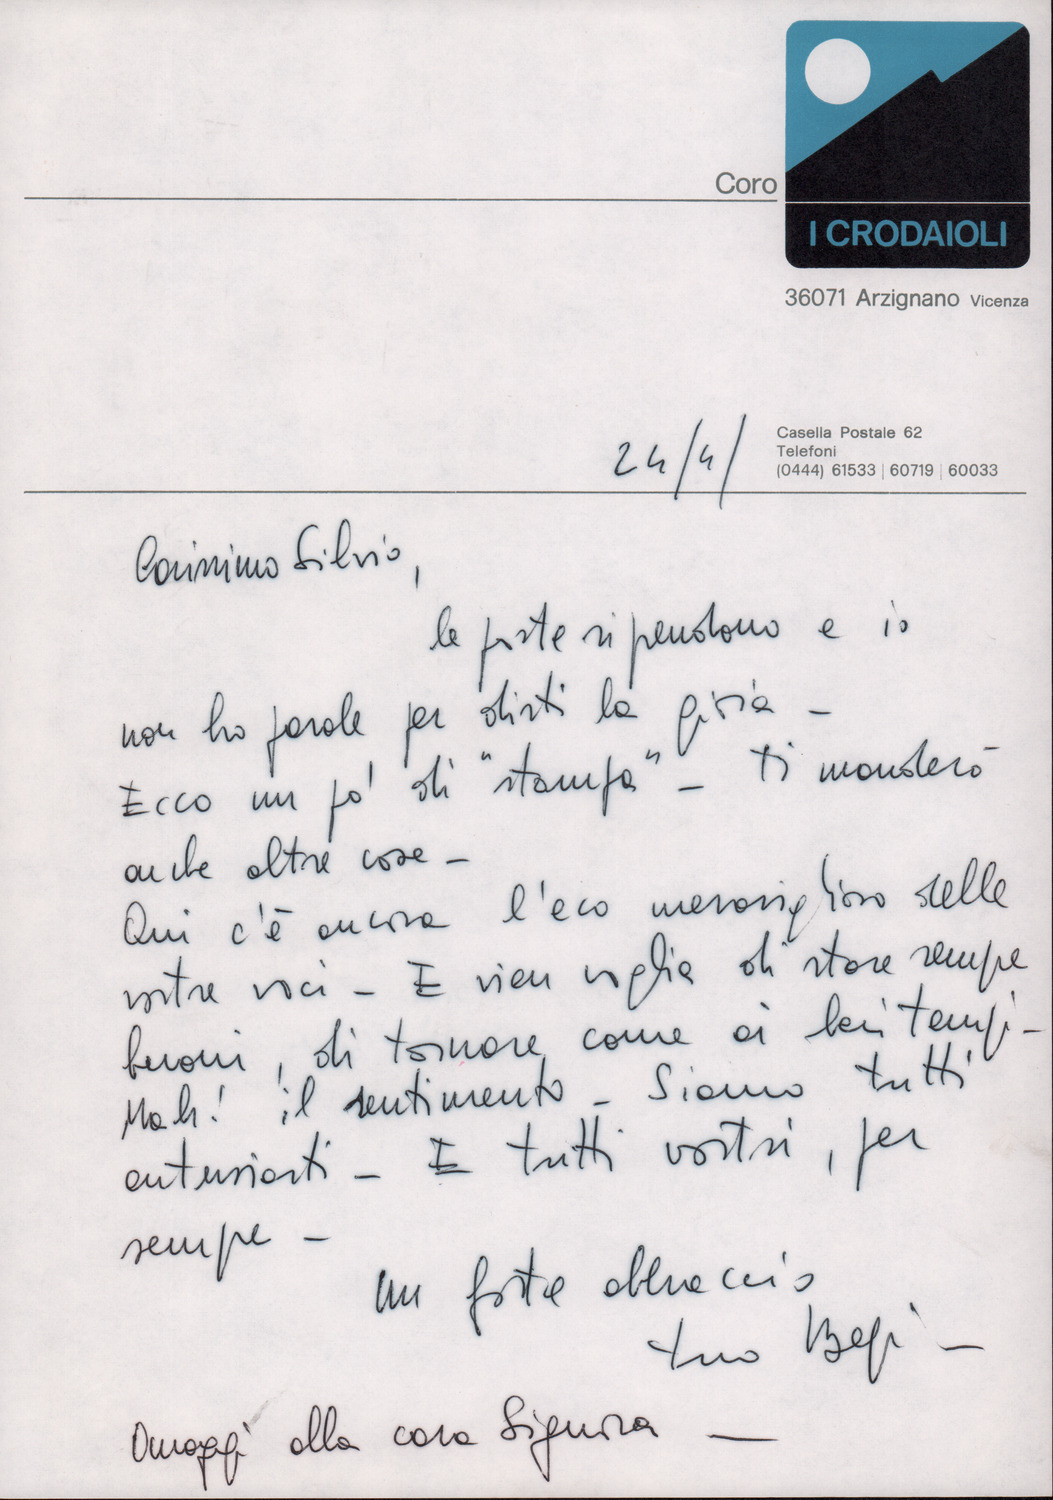 Coro
I CRODAIOLI
36071 Arzignano Vicenza
24/4/
Casella Postale 62
Telefoni
(0444) 61533 | 60719 | 60033
Carissimo Silvio,
le poste ripendono e io
non ho parole per dirti la gioia –
Ecco un po' di "stampa" – Ti manderò
anche altre cose –
Qui c'è ancora l'eco meraviglioso delle
vostre voci – E vien voglia di stare sempre
benoni, di tornare come ai bei tempi –
Mah! il sentimento – Siamo tutti
entusiasti – E tutti vostri, per
sempre –
Un forte abbraccio
tuo Bepi –
Omaggi alla cara Signora —